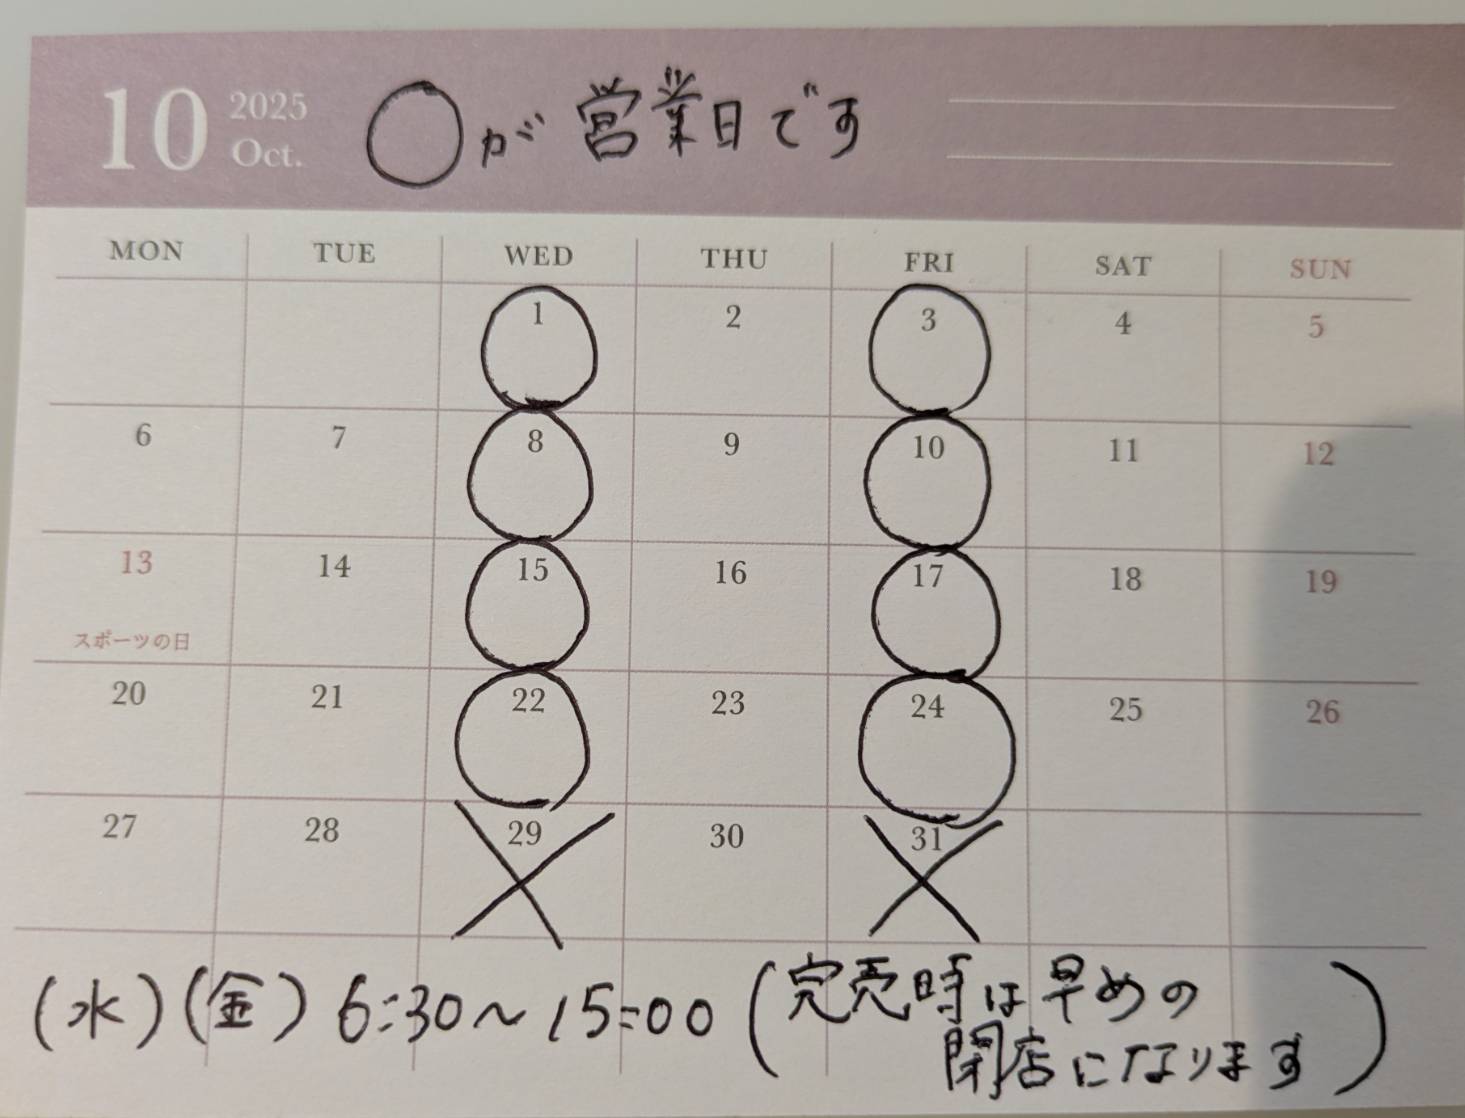 10 2025 Oct. ○が営業日です
MON TUE WED THU FRI SAT SUN
1 2 3 4 5
6 7 8 9 10 11 12
13 14 15 16 17 18 19
スポーツの日
20 21 22 23 24 25 26
27 28 29 30 31
(水)(金) 6:30〜15:00 (完売時は早めの
閉店になります)